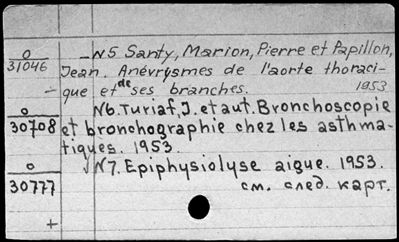 О
31046
– N5 Santy, Marion, Pierre et Papillon,
Jean. Anévrysmes de l'aorte thoraci-
que et de ses branches. 1953
О
30708
N6. Turiaf, J. et aut. Bronchoscopie
et bronchographie chez les asthma-
tiques. 1953
О
30777
N7. Epiphysiolyse aigue. 1953.
см. след. карт.
+